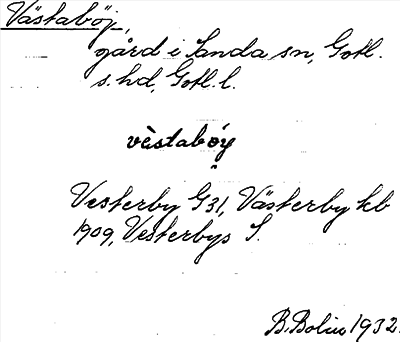 Västaböj,
gård i Sanda sn, Gotl.
s. hd, Gotl. l.
vèstabǫy
Vesterby G31, Västerby kb
1909, Vesterbys S.
B. Bolin 1932.